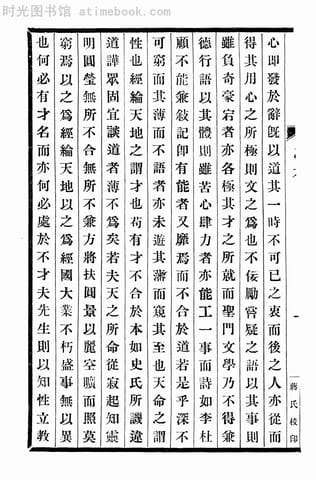 时光图书馆 - atimebook.com
心卽發於辭旣以道其一時不可已之衷而後之人亦從而
得其用心之所極則文之爲也不佞勵嘗疑之語以其事則
雖負奇豪宕者亦各極其才之所就而聖門文學乃不得兼
德行語以其體則雖苦心肆力者亦能工一事而詩如李杜
顧不能兼敍記卽有能者又靡焉而不合於道若是乎深不
可窮而其薄而不語者亦未遊其藩而窺其至也天命之謂
性也經綸天地之謂才也苟有才不合於本如史氏所譏違
道譁眾固宜談道者薄不爲矣若夫天之所命從寂起知靈
明圓瑩無所不合無所不兼方將扶圓景以麗空曠而照莫
窮焉以之爲經綸天地以之爲經國大業不朽盛事無以異
也何必有才名而亦何必處於不才夫先生則以知性立教
一
蔣氏校印